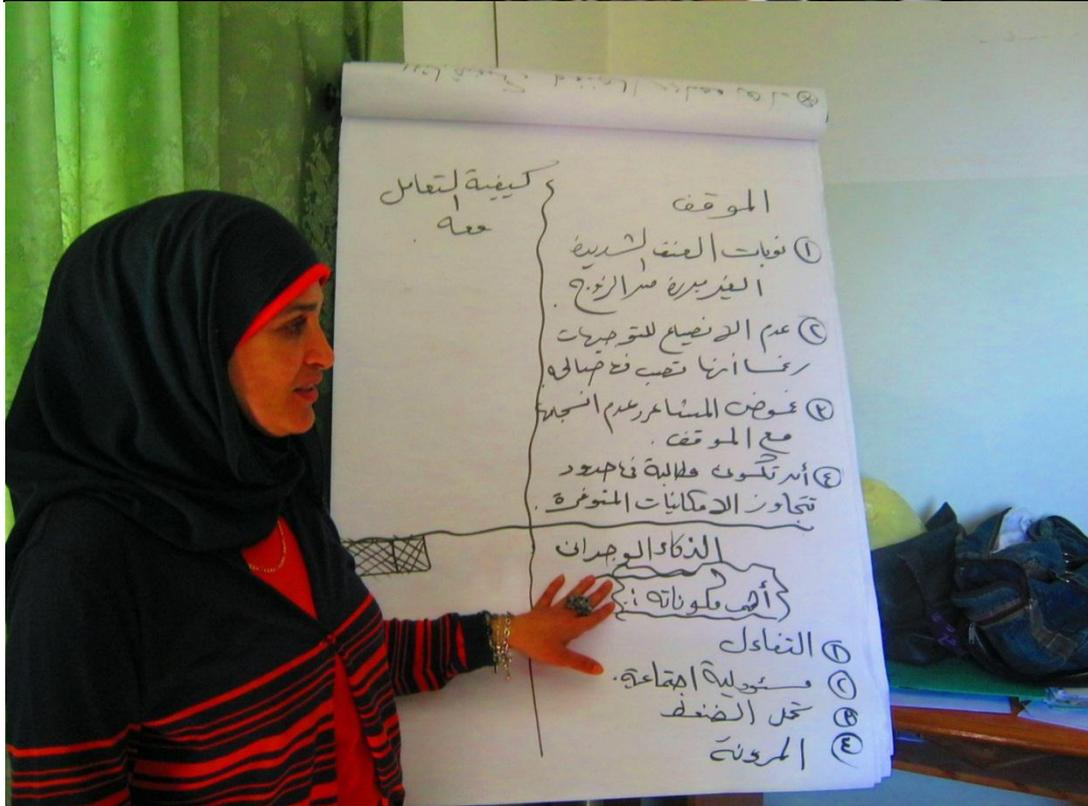 الموقف
① نوبات العنف الشديدة
الغير مبررة من الزوج.
② عدم الانصياع للتوجيهات
رغم أنها تصب فى صالح
③ غموض المشاعر وعدم انسجامها
مع الموقف.
④ أن تكون مطالبة فى حدود
تتجاوز الامكانيات المتوفرة.
كيفية التعامل
معه
الذكاء الوجدانى
أهم مكوناته :
① التفاءل
② مسئولية اجتماعية.
③ تحمل الضغط
④ المرونة